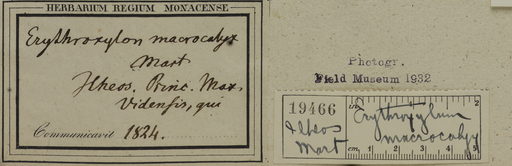 HERBARIUM REGIUM MONACENSE
Erythroxylon macrocalyx
Mart
Ilheos. Princ. Max.
Vidensis, qui
Communicavit 1824.
Photogr.
Field Museum 1932
19466
Ilheos
Mart
Erythroxylum
macrocalyx
cm